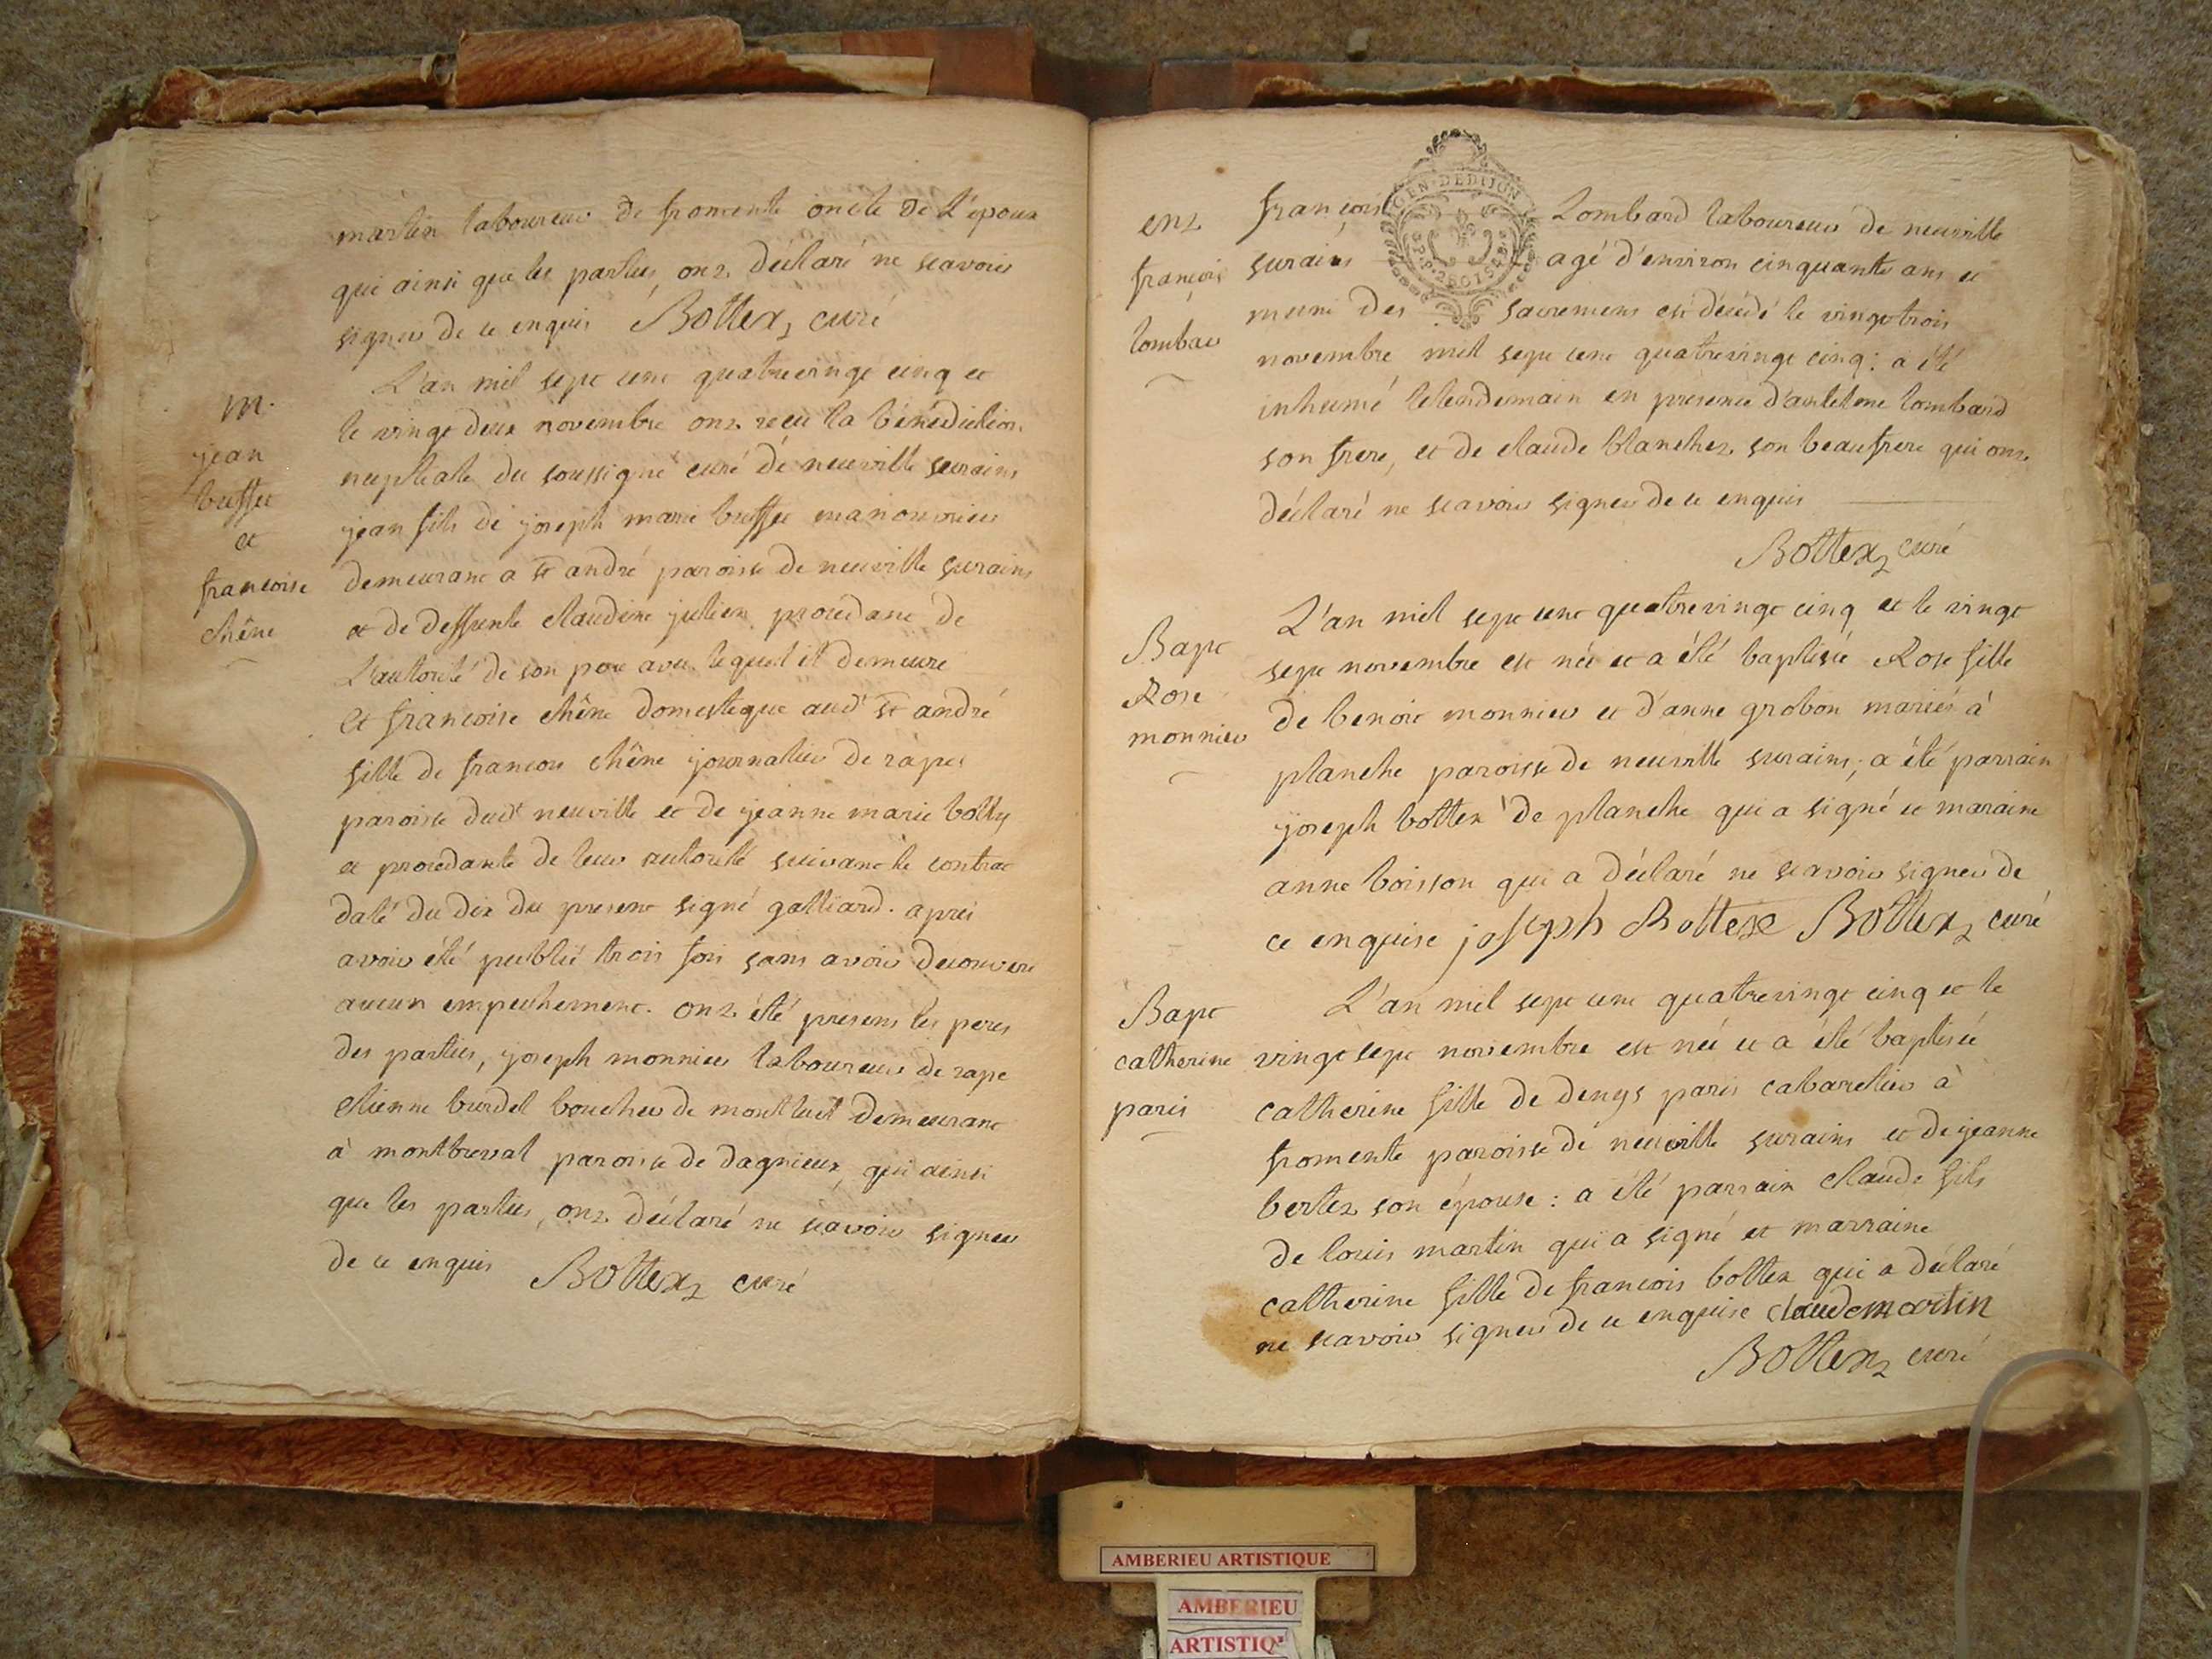 martin laboureur de fromente oncle de L'epoux
qui ainsi que les parties, ont déclaré ne scavoir
signer de ce enquis Bottex, curé
m.
jean
buffet
et
francoise
chêne
L'an mil sept cent quatrevingt cinq et
le vingt deux novembre ont recu la bénédiction
nuptiale du soussigné curé de neuville surains
jean fils de joseph marie buffet manouvrier
demeurant a st andré paroisse de neuville surains
et de deffunte claudine julien procedant de
L'autorité de son pere avec lequel il demeure
Et francoise chêne domestique aud' st andré
fille de francois chêne journalier de rapes
paroisse dudt neuville et de jeanne marie bolley
et procedante de leur autorité suivant le contrat
daté du dix du present signé galliard. apres
avoir été publié trois fois sans avoir decouvert
aucun empechement. ont été presens les peres
des parties, joseph monnier laboureur de rape
etienne burdel boucher de montluel demeurant
à montbreval paroisse de dagnieux, qui ainsi
que les parties, ont déclaré ne scavoir signer
de ce enquis Bottex, curé
ent
françois
lombar
GEN. DE DIJON
françois Lombard laboureur de neuville
surains agé d'environ cinquante ans et
muni des sacremens est décédé le vingt trois
novembre mil sept cent quatrevingt cinq: a été
inhumé le lendemain en presence d'antelme lombard
son frere, et de claude blanchet son beaufrere qui ont
déclaré ne scavoir signer de ce enquis
Bottex, curé
Bapt
Rose
monnier
L'an mil sept cent quatrevingt cinq et le vingt
sept novembre est née et a été baptisée Rose fille
de benoit monnier et d'anne grobon mariés à
planche paroisse de neuville surains; a été parrain
joseph bottex de planche qui a signé et maraine
anne boisson qui a déclaré ne scavoir signer de
ce enquise joseph Bottex Bottex, curé
Bapt
catherine
paris
L'an mil sept cent quatrevingt cinq et le
vingt sept novembre est née et a été baptisée
catherine fille de denys paris cabaretier à
fromente paroisse de neuville surains et de jeanne
bertet son épouse: a été parrain claude fils
de louis martin qui a signé et marraine
catherine fille de francois bottex qui a déclaré
ne scavoir signer de ce enquise claude martin
Bottex, curé
AMBERIEU ARTISTIQUE
AMBERIEU
ARTISTIQ